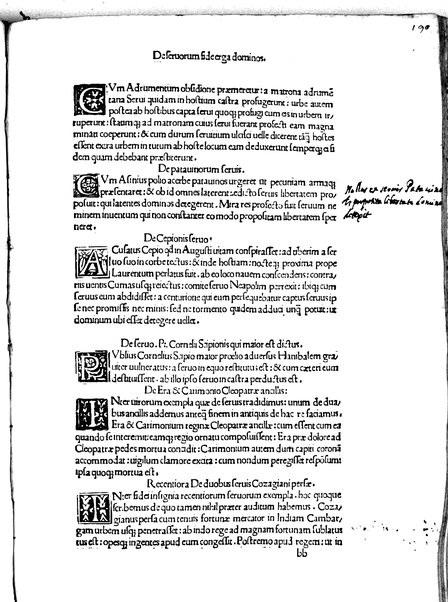 190
De seruorum fide erga dominos.
CVm Adrumentum obsidione præmeretur: a matrona adrumē
tana Serui quidam in hostium castra profugerunt: urbe autem
postea ab hostibus capta serui quoqȝ profugi cum eis in urbem ir
ruperunt: statimqȝ ad matronam cuius serui fuerant profecti eam magna
minari cœperunt: & cum durum seruitium ulciso uelle dicerent tāqȝ hostes
essent extra urbem in tutum ab hoste locum eam deduxerunt semperqȝ ei fi
dem quam debebant præstiterunt.
De patauinorum seruis.
CVm Asinius polio acerbe patauinos urgeret ut pecuniam armaqȝ
præsentaret: & ob id omnes laterent: edicto seruis libertatem pro
posuit: qui latentes dominos detegerent. Mira res profecto fuit seruum ne
minem inuentum qui non constanter eo modo propositam libertatem sper
neret.
De Cepionis seruo.
ACusatus Cepio qd in Augusti uitam conspirasset: ad tiberim a ser
uo suo in corbe tectus: & inde hostiam: nocteqȝ proxima prope
Laurentum perlatus fuit. ab eo loco nauem conscendens: contra
riis uentis Cumas usqȝ reiectus: comite seruo Neapolim perrexit: ibiqȝ cum
seruus eum abdidisset: a centurione qui eum persequebatur captus seruus ip
se nec promissis nec minis: sed ne tormento quidem adduci unqȝ potuit: ut
dominum ubi esset detegere uellet.
De seruo. P. Corneli Sapionis qui maior est dictus.
PVblius Cornelius Sapio maior prœlio aduersus Hanibalem gra
uiter uulneratus: a seruo in equo restitutus est: & cum cæteri eum
destituissent. ab illo ipso seruo in castra perductus est.
De Era & Carimonio Cleopatræ ancillis:
INter uirorum exempla quæ de seruis tradidimus: unum de dua
bus ancillis addemus anteqȝ finem in antiquis de hac re faciamus.
Era & Carimonium reginæ Cleopatræ ancillæ: cum essent cum ea
quando se interemit: eamqȝ regio ornatu composuissent: Era præ dolore ad
Cleopatræ pedes mortua concidit: Carimonium autem dum capiti coronā
accommodat: uigilum clamore exorta: cum nondum peregisset responsum
ipsa quoqȝ mortua est.
Recentiora De duobus seruis Cozagiani persæ.
INter fide insignia recentiorum seruorum exempla. hæc quoque
scribemus de quo tamen nihil præter auditum habemus. Coza
gianus persa cum tenuis fortunæ mercator in Indiam Cambar,
gam urbem usqȝ penetrasset: ab indo rege ad magnam fortunam sublatus
tus est: opesqȝ ingentes apud eum congessit. Postremo apud regem: ut in
bb